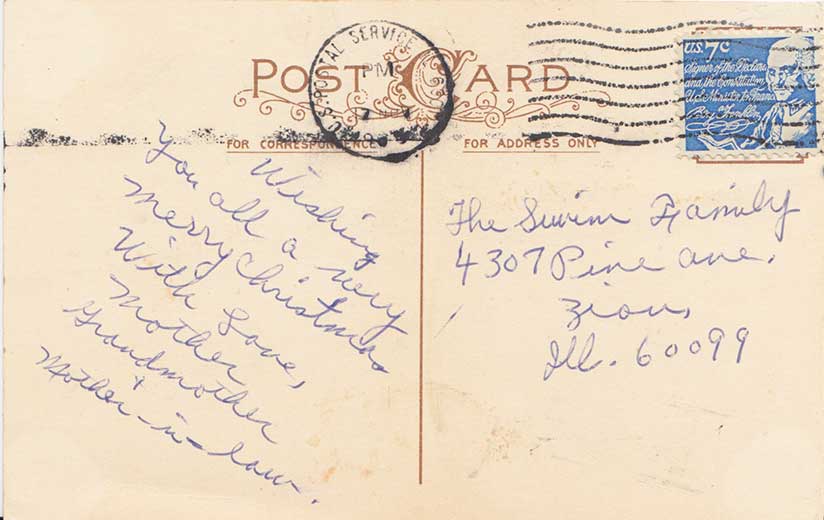 POST CARD
FOR CORRESPONDENCE
FOR ADDRESS ONLY
U.S. POSTAL SERVICE
PM
U.S. 7c
Signer of the Declaration
and the Constitution
U.S. Minister to France
Benj Franklin
Wishing
You all a very
Merry Christmas
With Love,
Mother
Grandmother
+
Mother-in-law.
The Swim Family
4307 Pine Ave.
Zion,
Ill. 60099